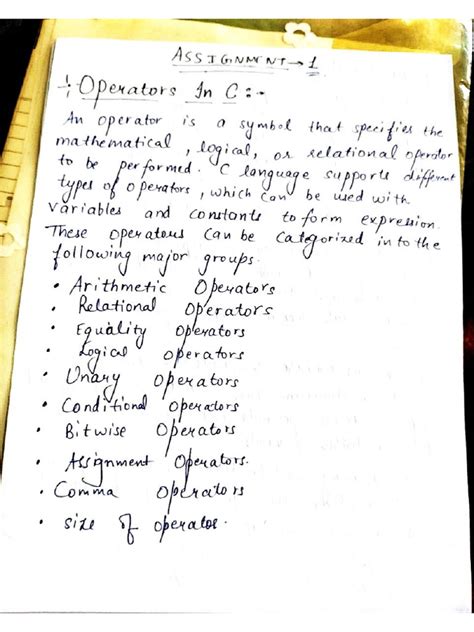 ASSIGNMENT → 1
Operators In C :-
An operator is a symbol that specifies the
mathematical, logical, or relational operator
to be performed. C language supports different
types of operators, which can be used with
variables and constants to form expression.
These operatous can be categorized in to the
following major groups.
• Arithmetic Operators
• Relational Operators
• Equality Operators
• Logical operators
• Unary operators
• Conditional operators
• Bitwise Operators
• Assignment Operators.
• Comma Operators
• size of operator.